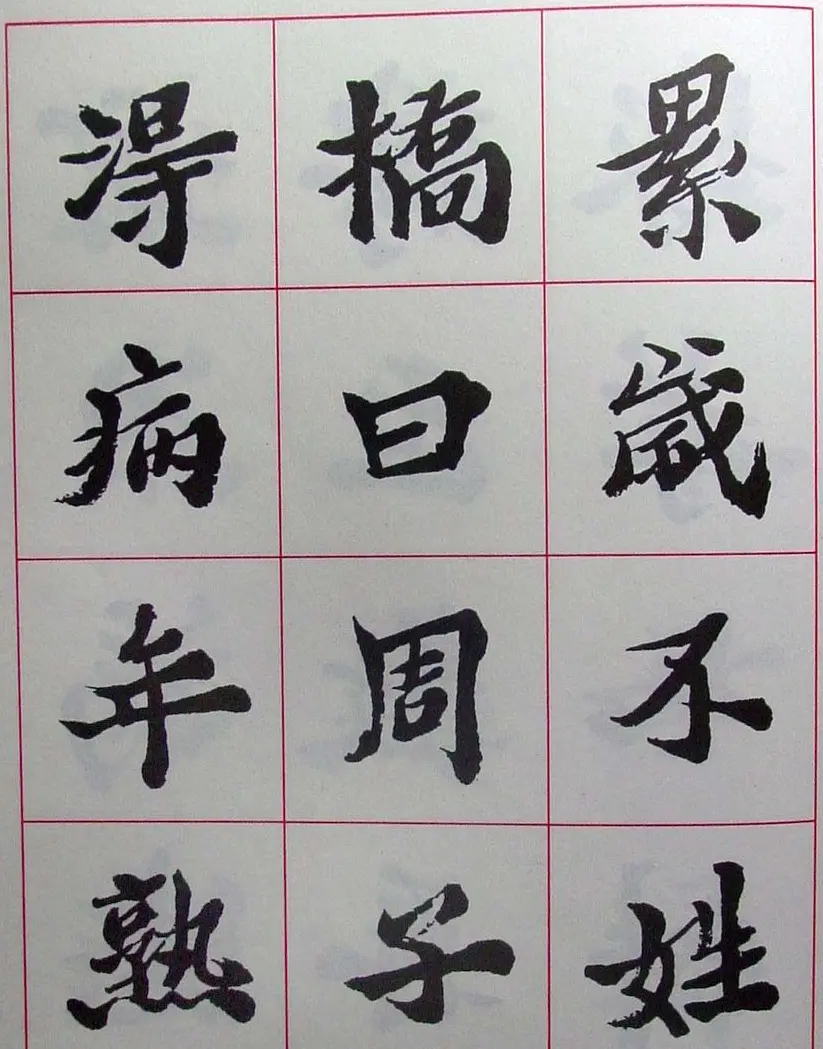 累歲不姓
橋曰周子
得病年熟